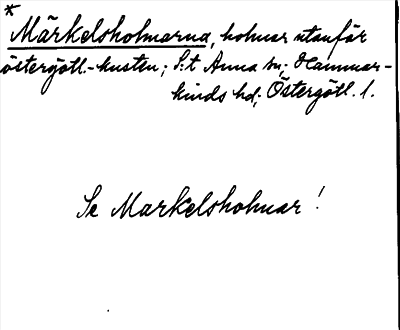 *
Märkelsholmarna, holmar utanför
östergötl.-kusten; S:t Anna sn; Hammar-
kinds hd; Östergötl. l.
Se Markelsholmar!